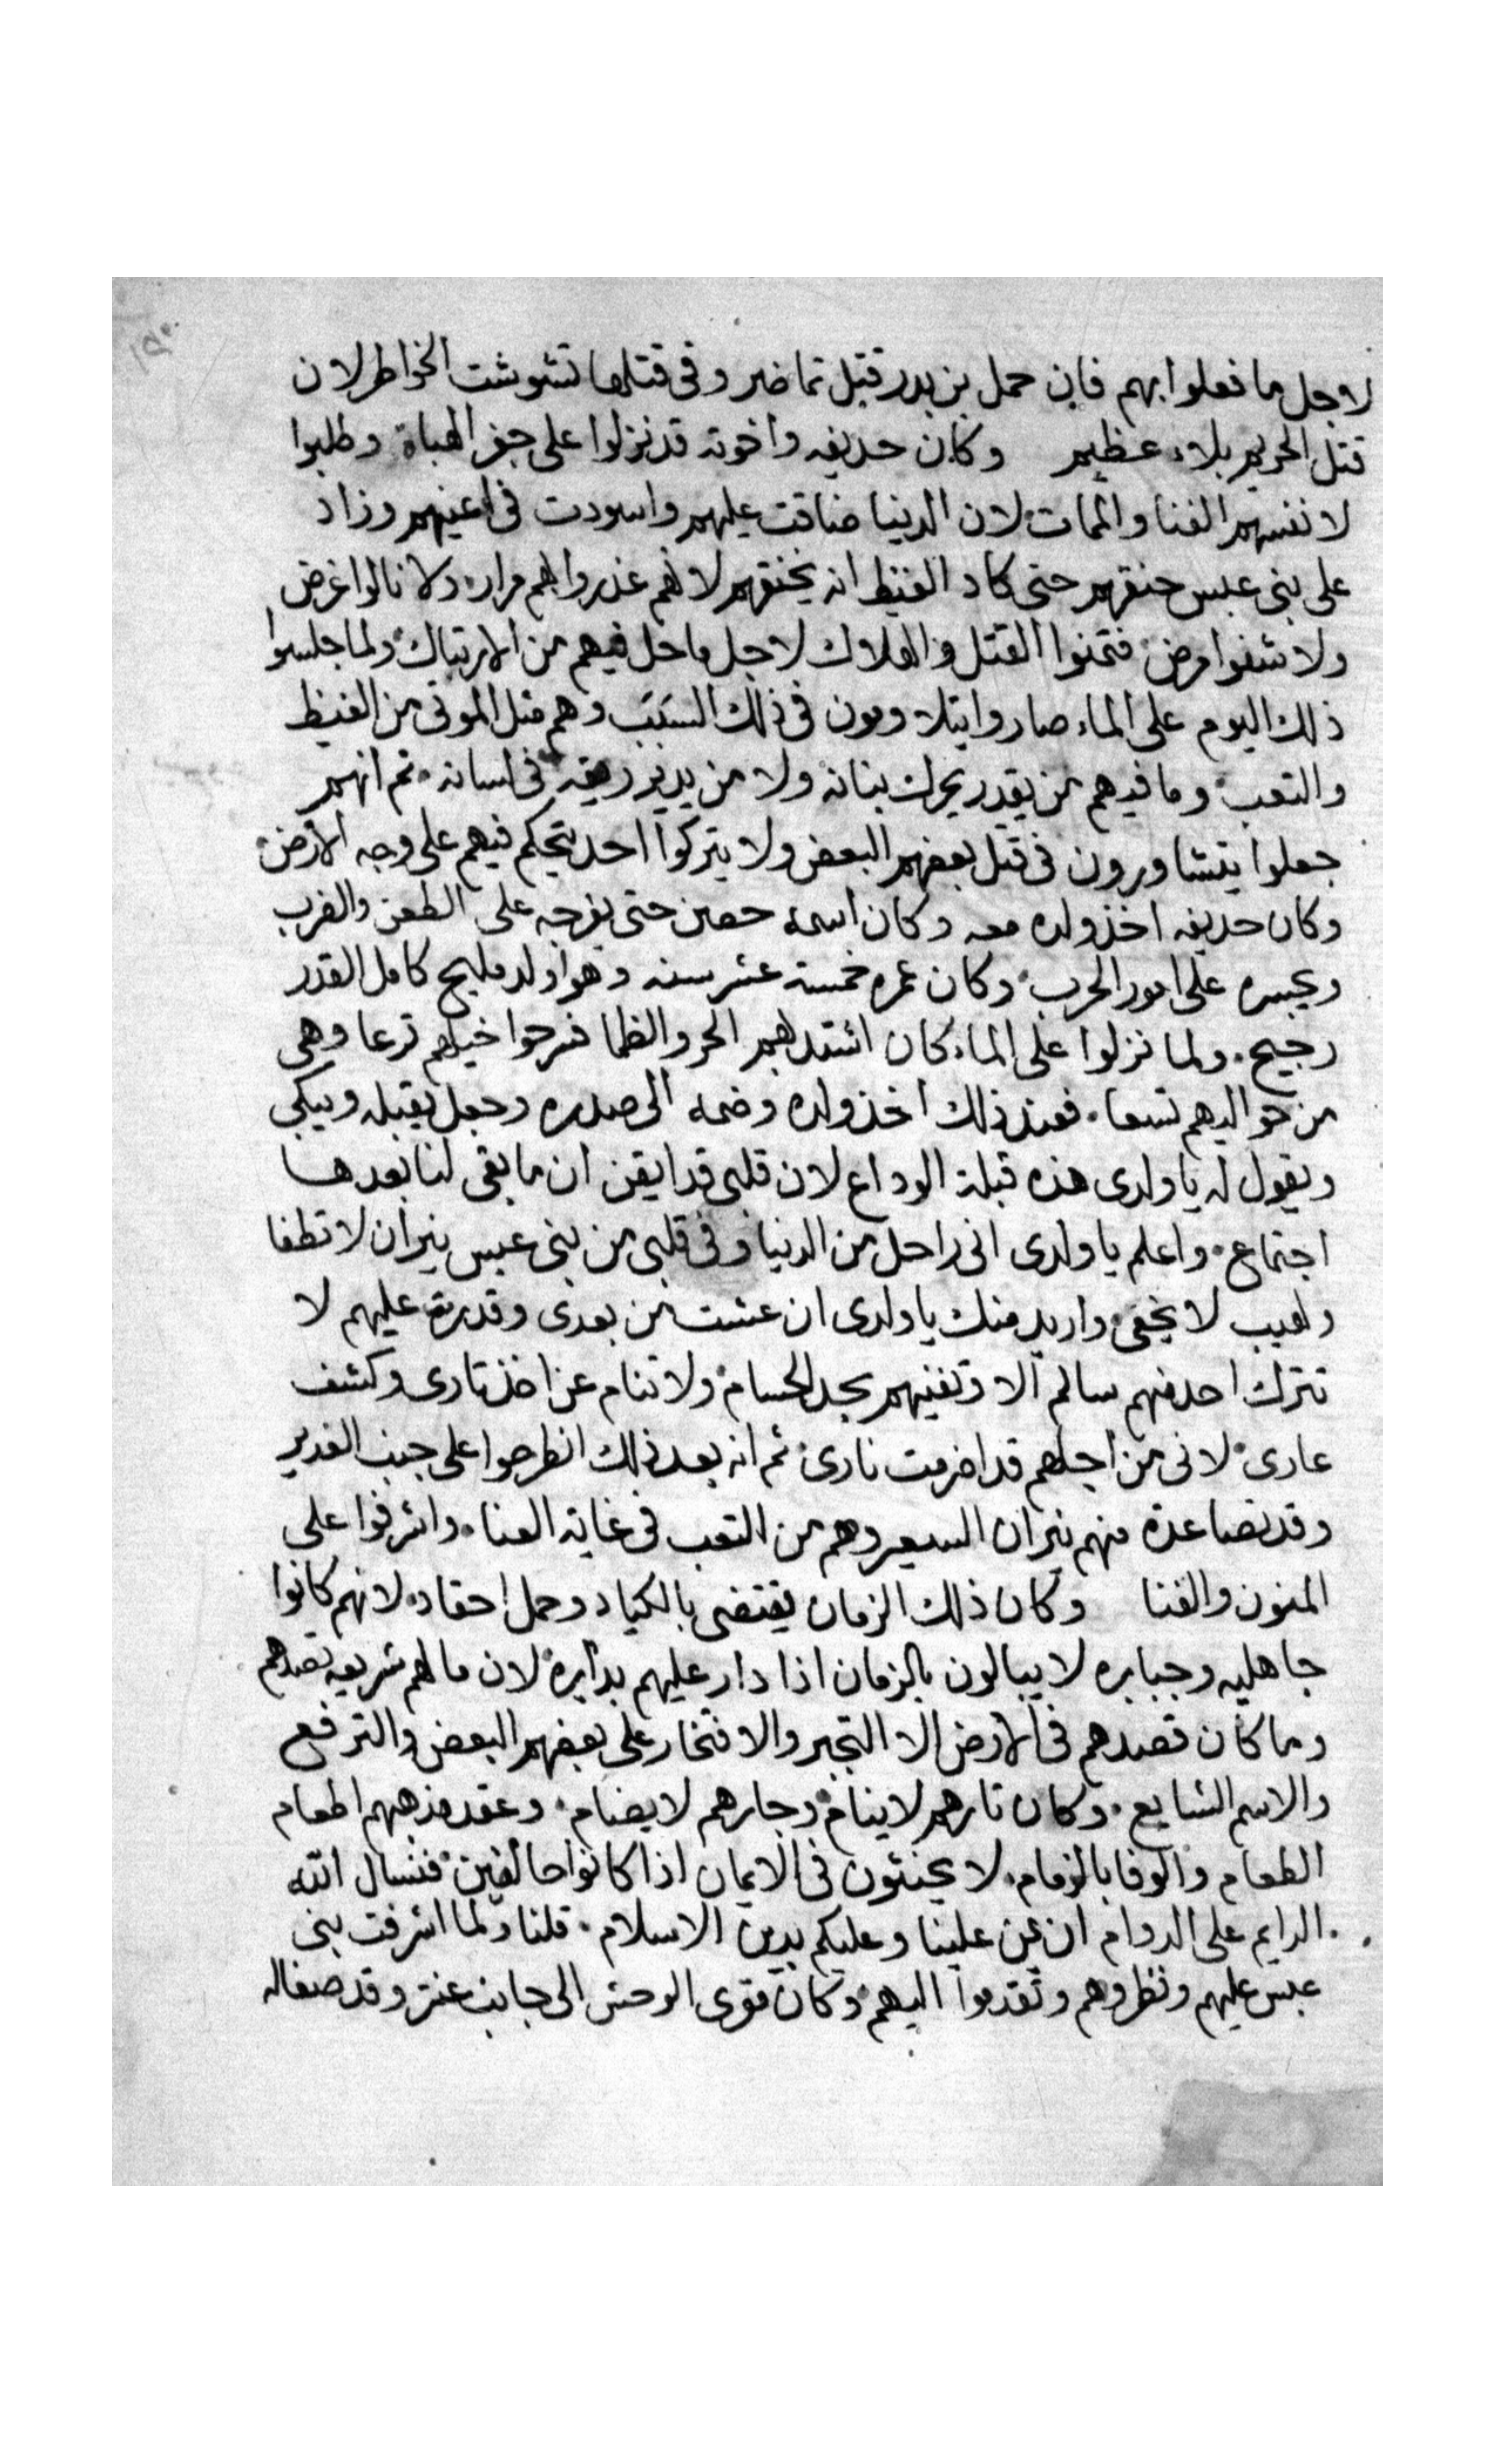 لاجل ما فعلوا بهم فان حمل بن بدر قتل تماضر وفى قتلها تشوشت الخواطر لان
قتل الحريم بلاء عظيم وكان حديفه واخوته قد نزلوا على جفر الهباة وطلبوا
لانفسهم الفنا والممات لان الدنيا ضاقت عليهم واسودت فى اعينهم وزاد
على بنى عبس حنقهم حتى كاد الغيظ انه يخنقهم لانهم غدروا بهم مرار ولا نالوا غرض
ولا شفوا مرض فتمنوا القتل والهلاك لاجل ما حل فيهم من الارتباك ولما جلسوا
ذلك اليوم على الماء صاروا يتلاومون فى ذلك السبب وهم مثل الموتى من الغيظ
والتعب وما فيهم من يقدر يحرك بنانه ولا من يدير ريقه فى لسانه ثم انهم
جعلوا يتشاورون فى قتل بعضهم البعض ولا يتركوا احد يتحكم فيهم على وجه الارض
وكان حديفه اخذ ولده معه وكان اسمه حصن حتى يفرجه على الطعن والضرب
ويجسره على امور الحرب وكان عمره خمسة عشر سنه وهوا ولد مليح كامل القدر
رجيح ولما نزلوا على الماء كان اشتد بهم الحر والظما فسرحوا خيلهم ترعا وهى
من حواليهم تسعا فعند ذلك اخذ ولده وضمه الى صدره وجعل يقبله ويبكى
ويقول له يا ولدى هذه قبلة الوداع لان قلبى قد ايقن ان ما بقى لنا بعدها
اجتماع واعلم يا ولدى انى راحل من الدنيا وفى قلبى من بنى عبس نيران لا تطفا
ولهيب لا يخفى واريد منك يا ولدى ان عشت من بعدى وقدرت عليهم لا
تترك احد منهم سالم الا وتفنيهم بحد الحسام ولا تنام عن اخذ تارى وكشف
عارى لانى من اجلهم قد اضرمت نارى ثم انه بعد ذلك انطرحوا على جنب الغدير
وقد تصاعدة منهم نيران السعير وهم من التعب فى غاية العنا واشرفوا على
المنون والفنا وكان ذلك الزمان يقتضى بالكياد وحمل احقاد لانهم كانوا
جاهليه وجبابره لا يبالون بالزمان اذا دار عليهم بدايره لان ما لهم شريعه تصدهم
وما كان قصدهم فى الارض الا التجبر والافتخار على بعضهم البعض والترفع
والاسم الشايع وكان تارهم لا ينام وجارهم لا يضام وعقد مذهبهم اطعام
الطعام والوفا بالزمام لا يحنثون فى الايمان اذا كانوا حالفين فنسال الله
الدايم على الدوام ان يمن علينا وعليكم بدين الاسلام قلنا ولما اشرفت بنى
عبس عليهم ونظروهم وتقدموا اليهم وكان مقرى الوحش الى جانب عنتر وقد صفا له